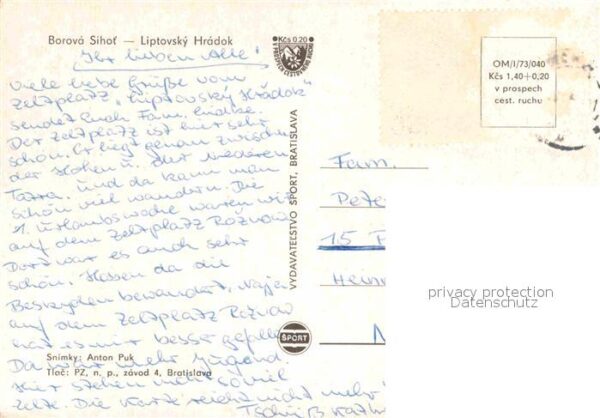 Borová Sihoť — Liptovský Hrádok
„Ihr lieben Alle!"
Viele liebe Grüße vom
Zeltplatz „Liptovský Hrádok"
sendet Euch Fam.
Der Zeltplatz ist hier sehr
schön. Er liegt genau zwischen
der Hohen u. der Niederen
Tatra. Und da kann man
schön viel wandern. Die
1. Urlaubswoche waren wir
auf dem Zeltplatz Rožnov
Dort war es auch sehr
schön. Haben da die
Beskyden bewandert.
auf dem Zeltplatz Rožnov
hat es mir besser gefallen
Da war mehr Jugend
Hier stehen nicht so viel
Zelte. Die Karte reicht nicht mehr!
Tschüß
Snímky: Anton Puk
Tlač: PZ, n. p., závod 4, Bratislava
Kčs 0.20
V PROSPECH CESTOVNÉHO RUCHU
VYDAVATEĽSTVO ŠPORT, BRATISLAVA
ŠPORT
OM/I/73/040
Kčs 1,40+0,20
v prospech
cest. ruchu
Fam.
Pete
15
privacy protection
Datenschutz